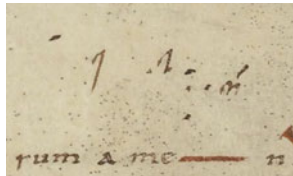 rum a me n